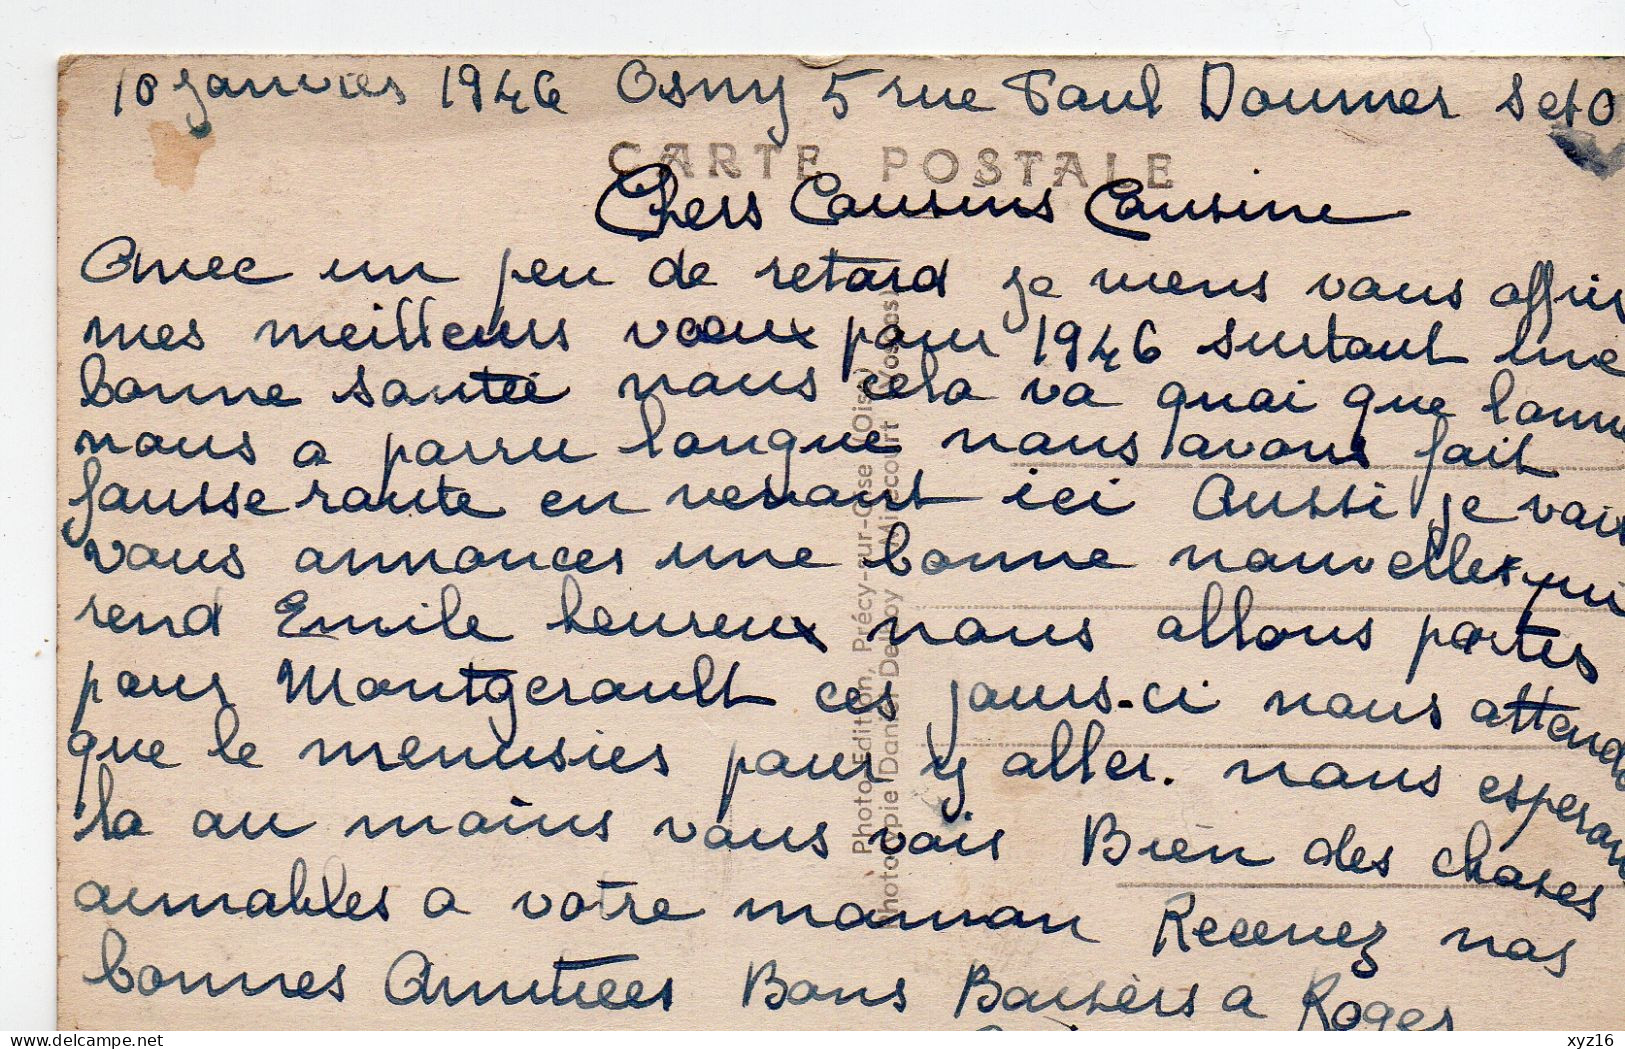 10 janvier 1946 Osny 5 rue Paul Doumer S et O
CARTE POSTALE
Chers Cousins Cousine
Avec un peu de retard je viens vous offrir
mes meilleurs vœux pour 1946 surtout une
bonne santée nous cela va quoi que
nous a parru longue nous avons fait
fausse route en venant ici Aussi je vais
vous annoncer une bonne nouvelle qui
rend Emile heureux nous allons partir
pour Montgerault ces jours-ci nous attendo
que le menusier pour y aller. nous esperon
la au moins vous voir Bien des choses
aimables a votre maman Recevez nos
bonnes Amitiées Bons Baisers a Roger
Photo-Edition, Précy-sur-Oise (Oise)
Phototypie Daniel Delboy - Mirecourt (Vosges)
xyz16